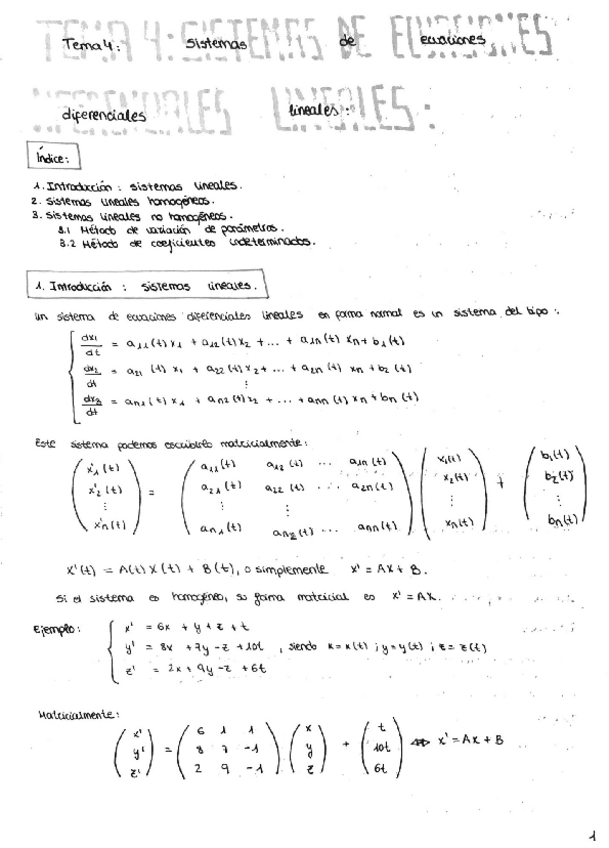 Tema 4: Sistemas de ecuaciones
diferenciales lineales:
Índice:
1. Introducción: sistemas lineales.
2. Sistemas lineales homogéneos.
3. Sistemas lineales no homogéneos.
3.1 Método de variación de parámetros.
3.2 Método de coeficientes indeterminados.
1. Introducción: sistemas lineales.
Un sistema de ecuaciones diferenciales lineales en forma normal es un sistema del tipo:
dx1/dt = a11(t) x1 + a12(t) x2 + ... + a1n(t) xn + b1(t)
dx2/dt = a21(t) x1 + a22(t) x2 + ... + a2n(t) xn + b2(t)
⋮
dxn/dt = an1(t) x1 + an2(t) x2 + ... + ann(t) xn + bn(t)
Este sistema podemos escribirlo matricialmente:
x'1(t) a11(t) a12(t) ... a1n(t) x1(t) b1(t)
x'2(t) = a21(t) a22(t) ... a2n(t) x2(t) + b2(t)
⋮ ⋮ ⋮ ⋮ ⋮
x'n(t) an1(t) an2(t) ... ann(t) xn(t) bn(t)
X'(t) = A(t) X(t) + B(t), o simplemente x' = Ax + B.
Si el sistema es homogéneo, su forma matricial es x' = AX.
Ejemplo: x' = 6x + y + z + t
y' = 8x + 7y - z + 10t , siendo x = x(t) ; y = y(t) ; z = z(t)
z' = 2x + 9y - z + 6t
Matricialmente:
x' 6 1 1 x t
y' = 8 7 -1 y + 10t ⇔ x' = Ax + B
z' 2 9 -1 z 6t
1